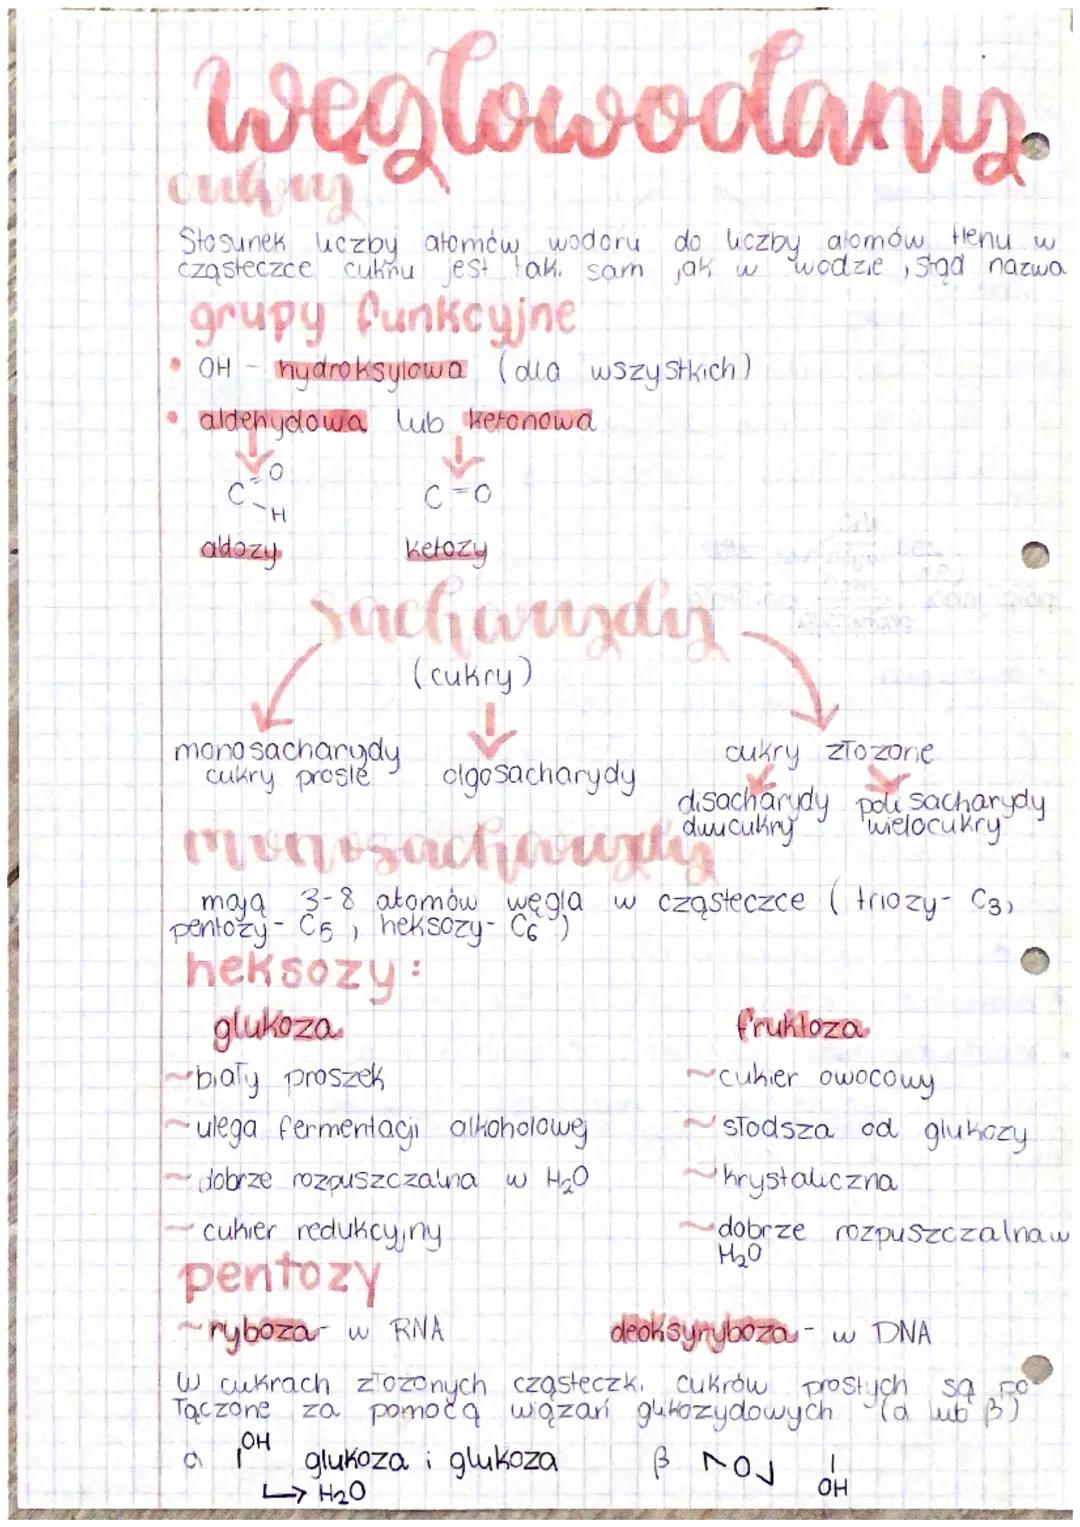 węglowodany
cukry
Stosunek liczby atomów wodoru do liczby atomów tlenu w
cząsteczce cukru jest tak. sam jak w wodzie, stąd nazwa
grupy funkcyjne
• OH - hydroksylowa (dla wszystkich)
• aldehydowa lub ketonowa
C=O
H
C=O
aldozy ketozy
sacharydy
(cukry)
monosacharydy
cukry proste
olgosacharydy
cukry złozone
disacharydy polisacharydy
dwucukry wielocukry
monosacharydy
mają 3-8 atomów węgla w cząsteczce (triozy- C3,
pentozy- C5, heksozy- C6)
heksozy:
glukoza
~biały proszek
~ulega fermentacji alkoholowej
~dobrze rozpuszczalna w H2O
~cukier redukcyjny
fruktoza
~cukier owocowy
~słodsza od glukozy
~krystaliczna
~dobrze rozpuszczalna w
H2O
pentozy
~ryboza- w RNA deoksyryboza- w DNA
W cukrach złożonych cząsteczki cukrów prostych są po
łączone za pomocą wiązań glikozydowych (α lub β)
α OH glukoza i glukoza β O OH
↳ H2O